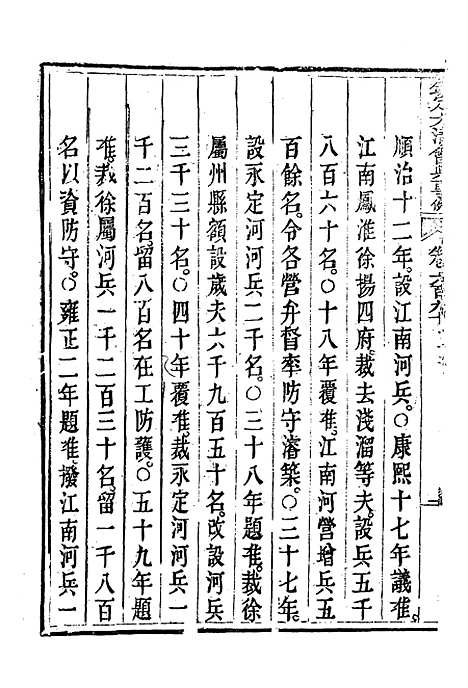 欽定大清會典事例
順治十二年。設江南河兵。○康熙十七年議准。
江南鳳淮徐揚四府。裁去淺溜等夫。設兵五千
八百六十名。○十八年覆准。江南河營增兵五
百餘名。令各營弁督率防守濬築。○三十七年。
設永定河河兵二千名。○三十八年題准。裁徐
屬州縣額設歲夫六千九百五十名。改設河兵
三千三十名。○四十年覆准。裁永定河河兵一
千二百名。留八百名在工防護。○五十九年題
准。裁徐屬河兵一千二百三十名。留一千八百
名以資防守。○雍正二年題准。撥江南河兵一